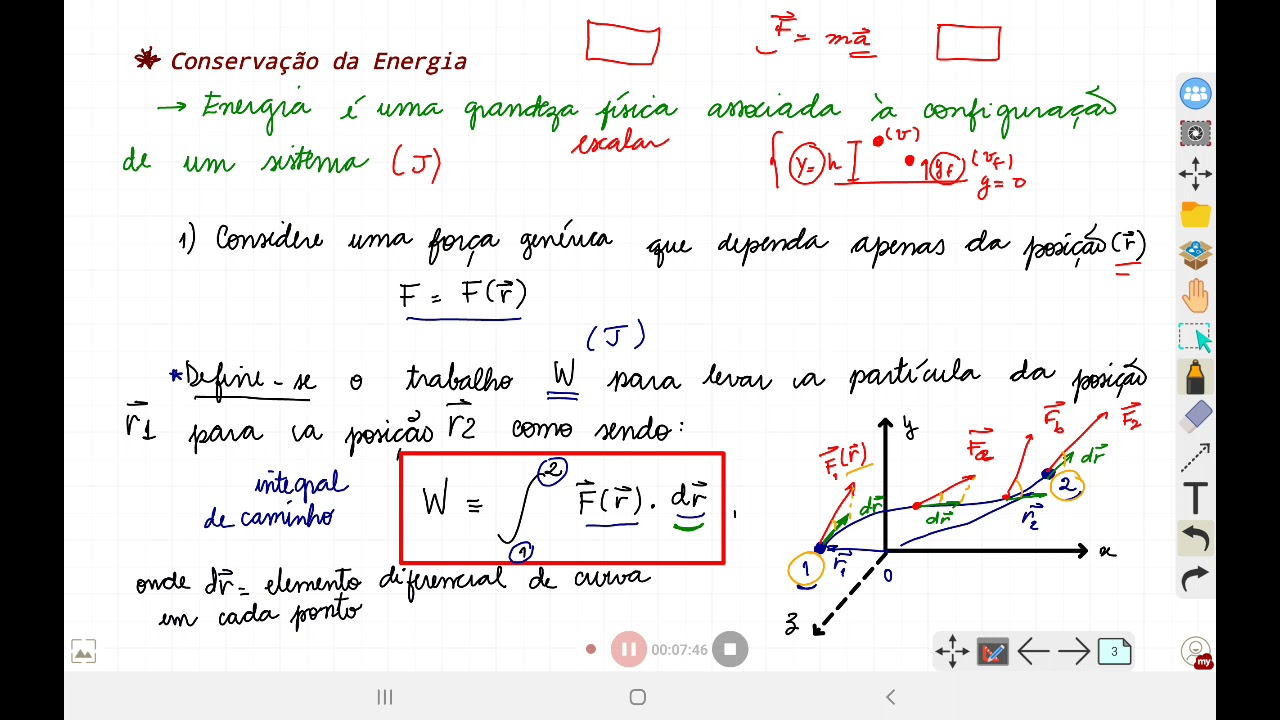 F⃗ = ma⃗
* Conservação da Energia
→ Energia é uma grandeza física associada à configuração
escalar
de um sistema (J)
(v)
y= h
yf (vf)
y = 0
1) Considere uma força genérica que dependa apenas da posição (r⃗)
F = F(r⃗)
(J)
* Define-se o trabalho W para levar a partícula da posição
r⃗1 para a posição r⃗2 como sendo:
integral
de caminho
W ≡ ∫ F⃗(r⃗) · dr⃗ ,
2
1
onde dr⃗ = elemento diferencial de curva
em cada ponto
y
F⃗1(r⃗)
F⃗a
F⃗b
F⃗2
dr⃗
dr⃗
dr⃗
2
r⃗2
1
r⃗1
0
x
z
00:07:46
3
my
T